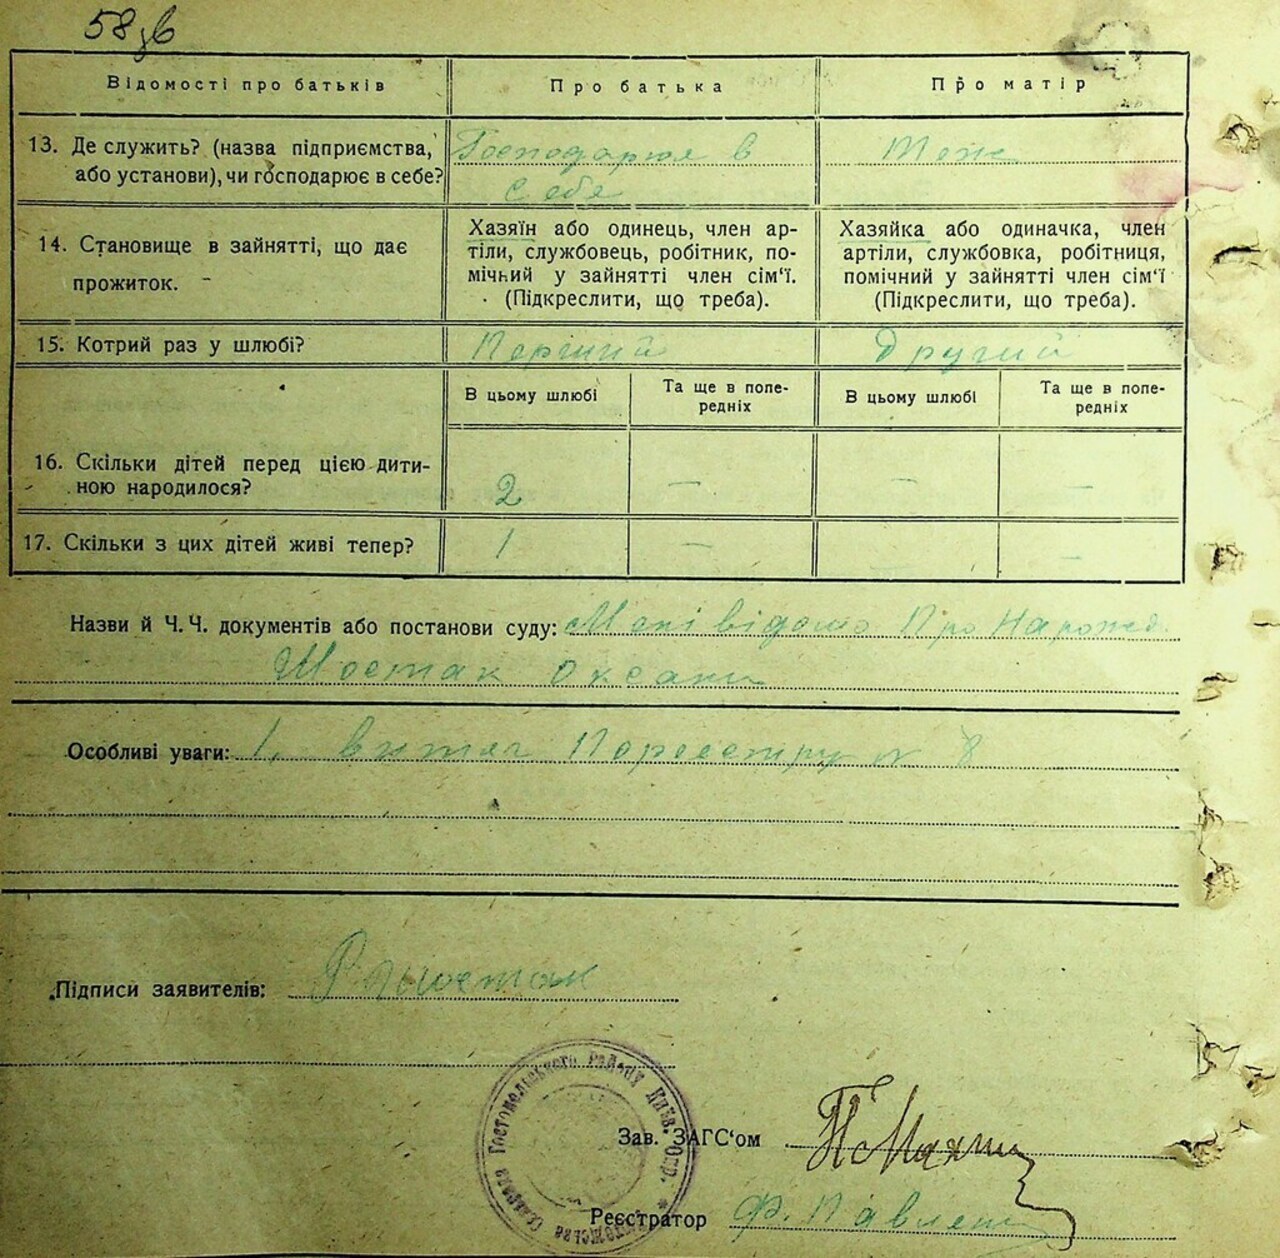 58 зв
Відомості про батьків
Про батька
Про матір
13. Де служить? (назва підприємства, або установи), чи господарює в себе?
Господарює в
себе
Теж
14. Становище в зайнятті, що дає прожиток.
Хазяїн або одинець, член ар-
тіли, службовець, робітник, по-
мічний у зайнятті член сім'ї.
(Підкреслити, що треба).
Хазяйка або одиначка, член
артіли, службовка, робітниця,
помічний у зайнятті член сім'ї
(Підкреслити, що треба).
15. Котрий раз у шлюбі?
Перший
Другий
В цьому шлюбі
Та ще в попе-
редніх
В цьому шлюбі
Та ще в попе-
редніх
16. Скільки дітей перед цією дити-
ною народилося?
2 — — —
17. Скільки з цих дітей живі тепер?
1 — —
Назви й Ч. Ч. документів або постанови суду: Мені відомо Про Нарожд.
Шостак Оксани
Особливі уваги: 1, витяг Пореєстру № 8
Підписи заявителів: Шостак
Гостомельського Району Київ. Окр.
Зав. ЗАГС'ом
Реєстратор Ф. Павлен